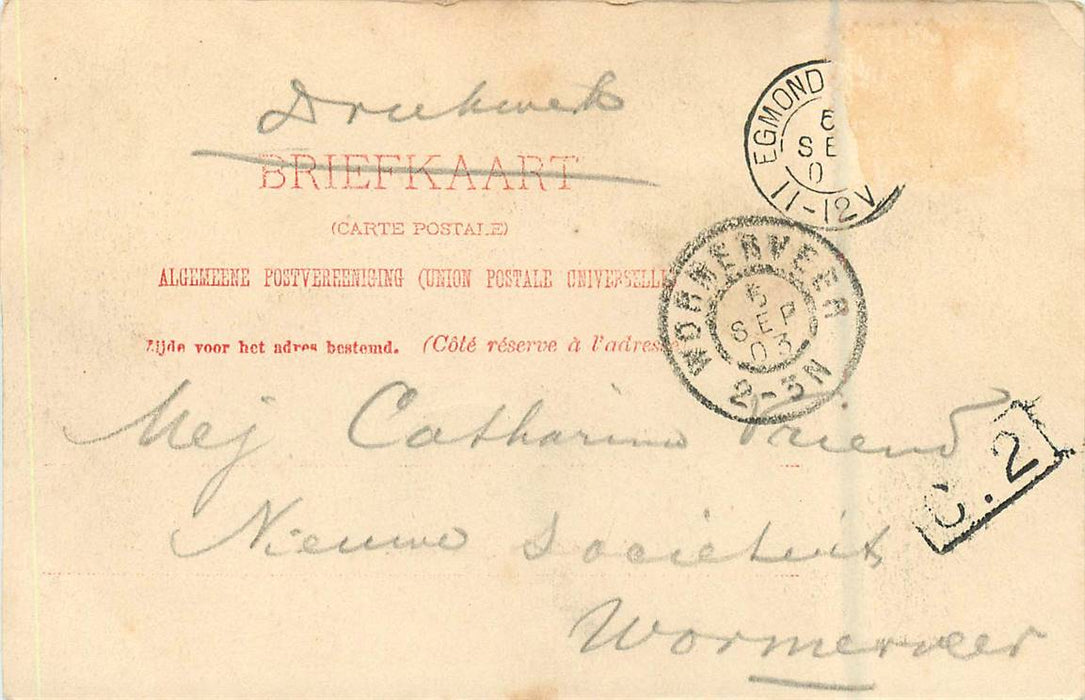 Drukwerk
BRIEFKAART
(CARTE POSTALE)
ALGEMEENE POSTVEREENIGING (UNION POSTALE UNIVERSELLE
Zijde voor het adres bestemd. (Côté réserve à l'adresse
EGMOND
SE
0
11-12V
WORMERVEER
5
SEP
03
2-3N
Mej Catharina Vriend
C.2
Nieuwe Societeit
Wormerveer